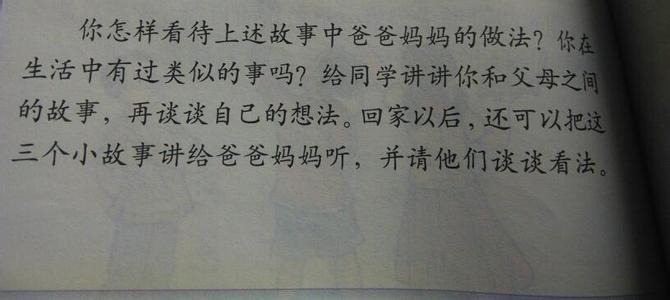 你怎样看待上述故事中爸爸妈妈的做法？你在
生活中有过类似的事吗？给同学讲讲你和父母之间
的故事，再谈谈自己的想法。回家以后，还可以把这
三个小故事讲给爸爸妈妈听，并请他们谈谈看法。